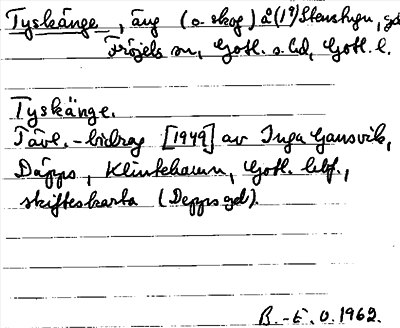 Tyskänge, äng (o. skog) å (1⁹) Stenstugu, gd
Fröjels sn, Gotl. s. hd, Gotl. l.
Tyskänge.
Tävl.-bidrag [1949] av Inga Gansvik,
Däpps, Klintehamn, Gotl. lbf.,
skifteskarta (Depps gd).
B.-E. O. 1962.